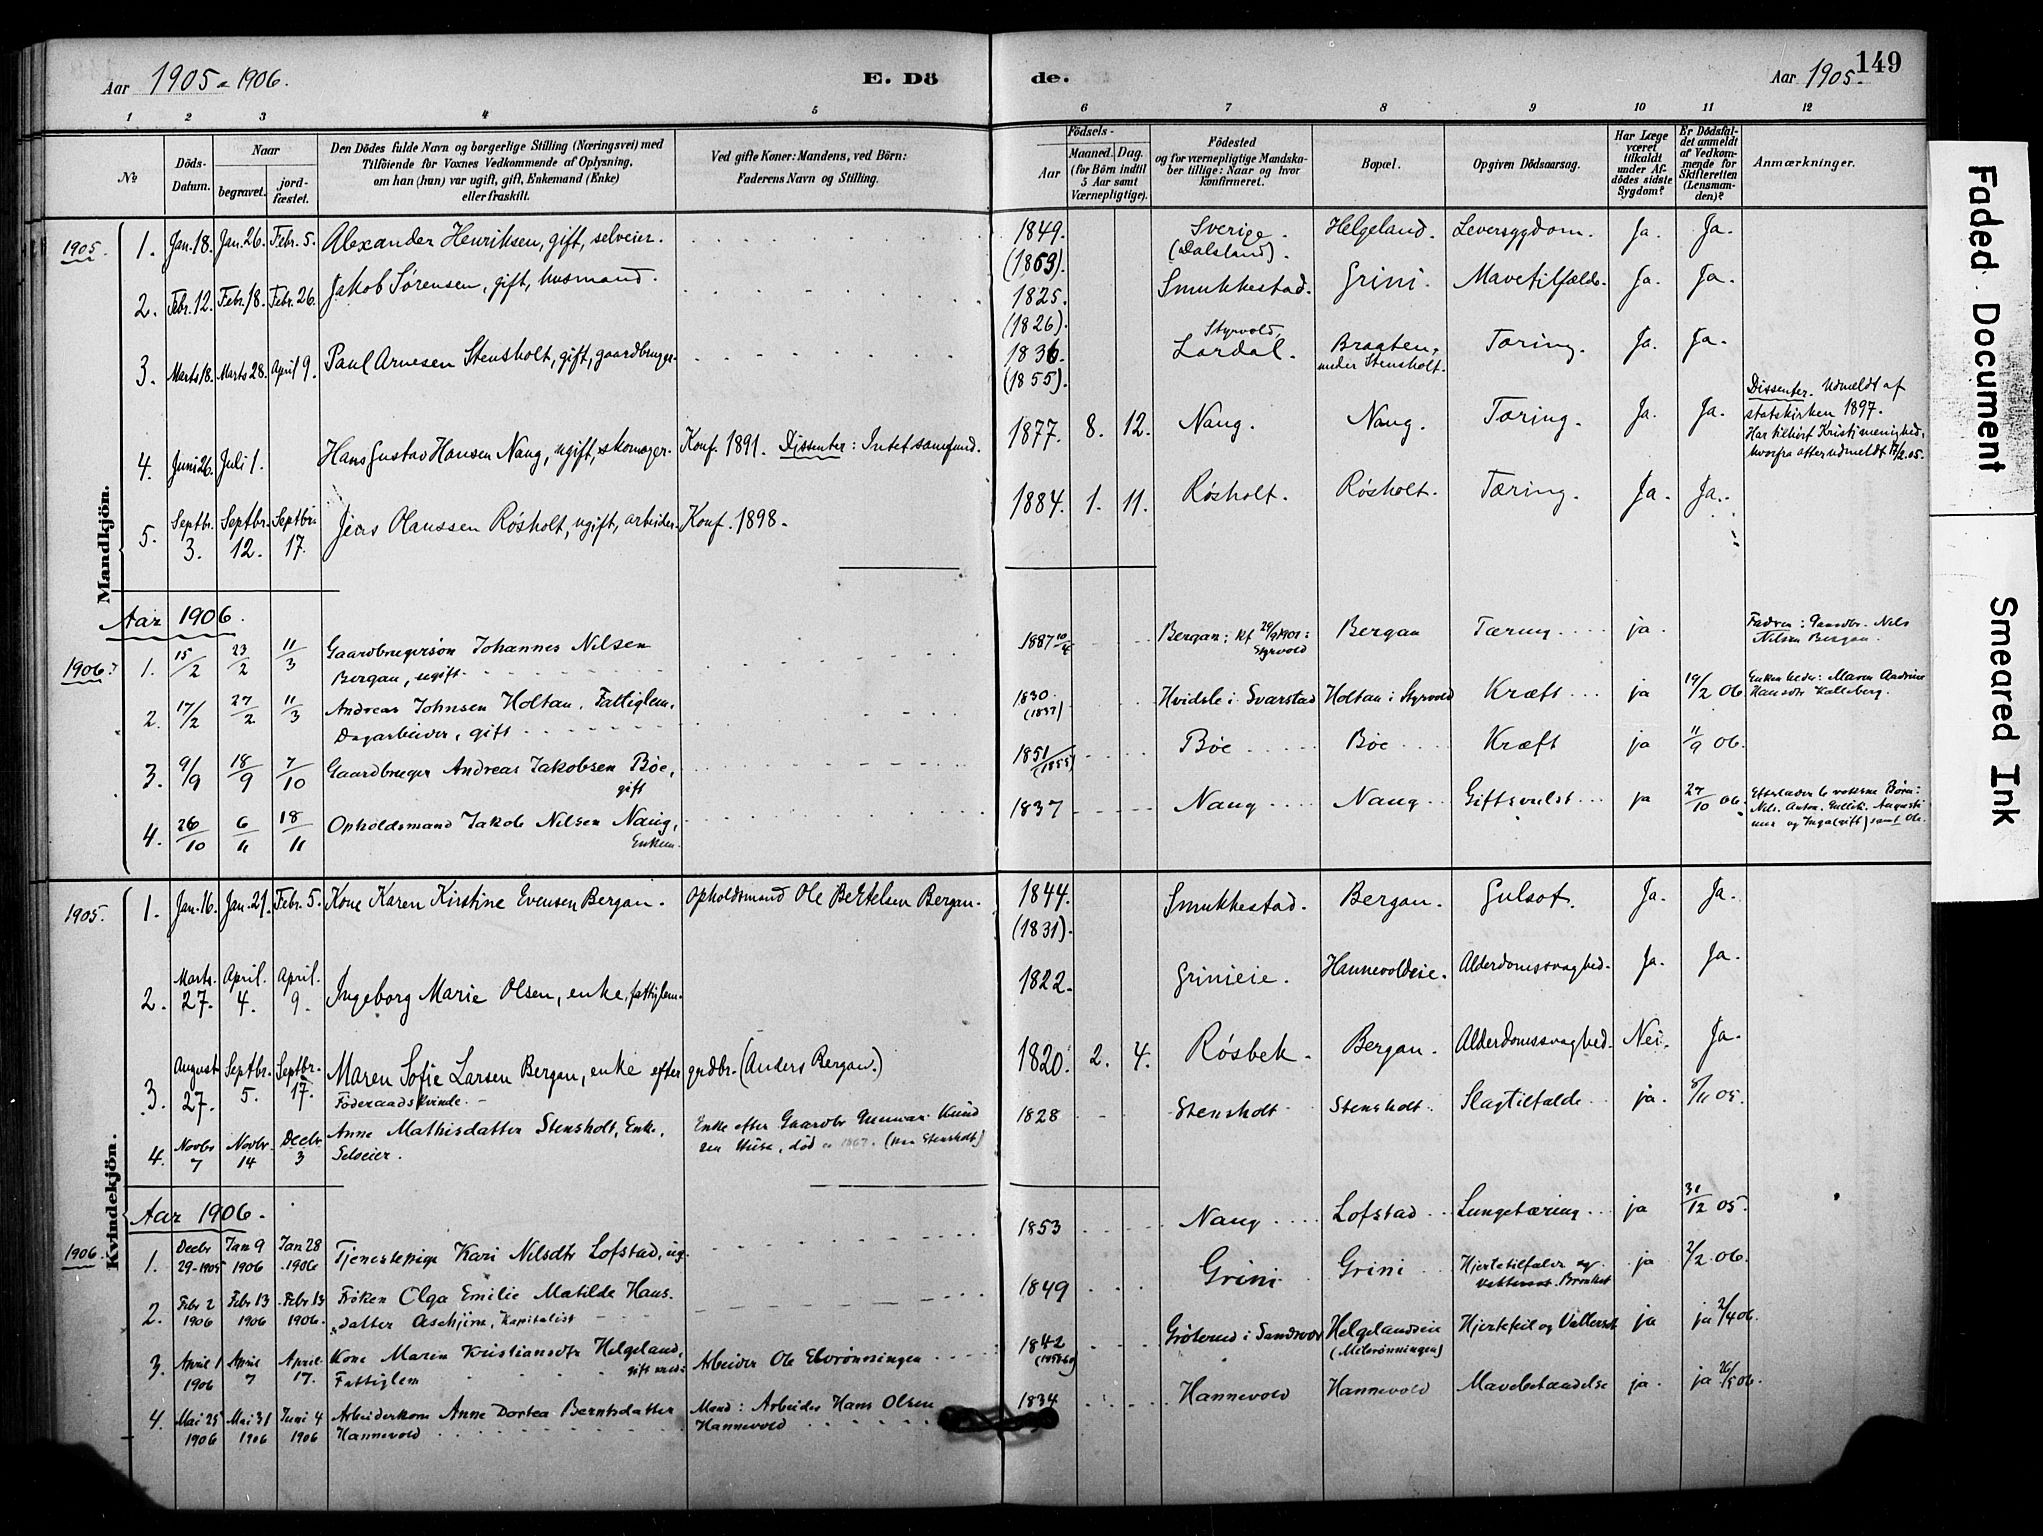 Aar 1905 a 1906.
E. Dö de.
Aar 1905.
149
1 2 3 4 5 6 7 8 9 10 11 12
No
Döds-Datum.
Naar
begravet.
jord-fæstet.
Den Dödes fulde Navn og borgerlige Stilling (Næringsvei) med
Tilföiende for Voxnes Vedkommende af Oplysning,
om han (hun) var ugift, gift, Enkemand (Enke)
eller fraskilt.
Ved gifte Koner: Mandens, ved Börn:
Faderens Navn og Stilling.
Födsels-
Aar
Maaned. Dag.
(for Börn indtil
5 Aar samt
Værnepligtige).
Födested
og for værnepligtige Mandska-
ber tillige: Naar og hvor
konfirmeret.
Bopæl.
Opgiven Dödsaarsag.
Har Læge
været
tilkaldt
under Af-
dödes sidste
Sygdom?
Er Dödsfal-
det anmeldt
af Vedkom-
mende for
Skifteretten
(Lensman-
den)?
Anmærkninger.
Mandkjön.
1905.
1. Jan. 18. Jan. 26. Febr. 5. Alexander Henriksen, gift, selveier. 1849. (1853). Sverige (Dalsland). Helgeland. Leversygdom. Ja. Ja.
2. Febr. 12. Febr. 18. Febr. 26. Jakob Sørensen, gift, husmand. 1825. (1826). Smukkestad. Grini. Mavetilfælde. Ja. Ja.
3. Marts 18. Marts 28. April 9. Paul Arnesen Stensholt, gift, gaardbruger. 1836. (1855). Styrvold, Lardal. Braaten, under Stensholt. Tæring. Ja. Ja.
4. Juni 26. Juli 1. Hans Gustav Hansen Naug, ugift, skomager. Konf. 1891. Dissenter: Intet samfund. 1877. 8. 12. Naug. Naug. Tæring. Ja. Ja. Dissenter. Udmeldt af
statskirken 1897.
Har tilhørt Kristi menighed,
hvorfra atter udmeldt 17/2 05.
5. Septbr. 3. Septbr. 12. Septbr. 17. Jens Olaussen Røsholt, ugift, arbeider. Konf. 1898. 1884. 1. 11. Røsholt. Røsholt. Tæring. Ja. Ja.
Aar 1906.
1906.
1. 15/2 23/2 11/3 Gaardbrugersøn Johannes Nilsen
Bergan, ugift. 1887 10/4 Bergan: kf 29/9 1901: Styrvold Bergan Tæring ja. Fadren: Gaardbr. Nils
Nilsen Bergan.
2. 17/2 27/2 11/3 Andreas Johnsen Holtan. Fattiglem.
Dagarbeider, gift 1830. (1837) Hvidsle i Svarstad Holtan i Styrvold Kræft ja 19/2 06 Enken heder: Maren Andrine
Hansdr Kalleberg.
3. 9/9 18/9 7/10 Gaardbruger Andreas Jakobsen Bøe,
gift 1851 (1855) Bøe Bøe Kræft ja 11/9 06.
4. 26/10 6/11 18/11 Opholdsmand Jakob Nilsen Naug,
Enkem. 1837 Naug Naug Giftsvulst ja 27/10 06. Efterlader 6 voksne Børn:
Nils, Anton, Gullik, Augusti
nus og Inga (gift) samt Ole.
Kvindekjön.
1905.
1. Jan. 16. Jan. 21. Febr. 5. Kone Karen Kirstine Evensen Bergan. Opholdsmand Ole Bertelsen Bergan. 1844. (1831). Smukkestad. Bergan. Gulsot. Ja. Ja.
2. Marts. 27. April. 4. April. 9. Ingeborg Marie Olsen, enke, fattiglem. 1822. Grinieie. Hannevoldeie. Alderdomssvaghed. Ja. Ja.
3. August 27. Septbr. 5. Septbr. 17. Maren Sofie Larsen Bergan, enke efter grdbr. (Anders Bergan.)
Føderaadskvinde. 1820. 2. 4. Røsbek. Bergan. Alderdomssvaghed. Nei. Ja.
4. Novbr 7 Novbr. 14 Decbr 3 Anne Mathisdatter Stensholt, Enke,
Selveier. Enke efter Gaardbr Gunnar Knud
sen , død 1867. (paa Stensholt) 1828 Stensholt Stensholt Slagtilfælde ja. 8/11 05.
Aar 1906.
1906.
1. Decbr 29-1905 Jan 9 1906 Jan 28 1906 Tjenestepige Kari Nilsdtr Lofstad, ug. 1853 Naug Lofstad Lungetæring ja 31/12 05.
2. Febr 2 1906 Febr 13 1906 Febr 13 1906. Frøken Olga Emilie Matilde Hans.
datter Aschjem, Kapitalist 1849 Grini Grini Hjertetilfælde og
vattersot. Bronkit ja 2/2 06.
3. April 1 1906 April 7 April 17. Kone Maren Kristiansdtr Helgeland,
Fattiglem gift med: Arbeider Ole Elvrønningen 1842 i Sandsvær Helgelandseie Hjertefeil og Vattersot ja ja 2/4 06.
4. Mai 25 1906 Mai 31 1906 Juni 4 1906 Arbeiderkone Anne Dortea Berntsdatter
Hannevold Mand: Arbeider Hans Olsen
Hannevold 1834 Hannevold Hannevold Mavebetændelse ja. ja 26/5 06.
Faded Document
Smeared Ink